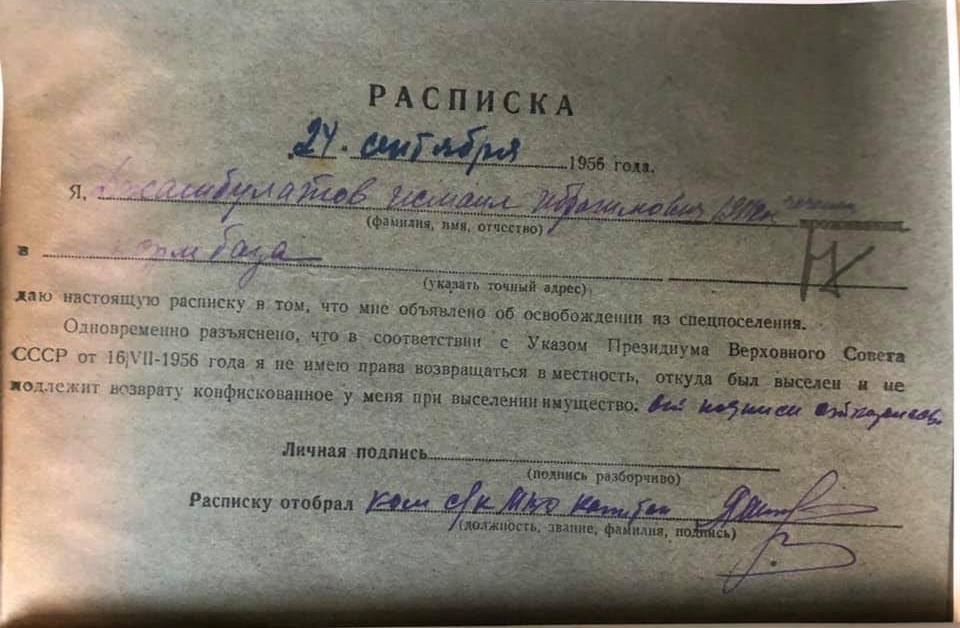 РАСПИСКА
24. сентября 1956 года.
Я, Хасамбулатов Исмаил Ибрагимович
(фамилия, имя, отчество)
в Кормбаза
(указать точный адрес)
даю настоящую расписку в том, что мне объявлено об освобождении из спецпоселения.
Одновременно разъяснено, что в соответствии с Указом Президиума Верховного Совета
СССР от 16/VII-1956 года я не имею права возвращаться в местность, откуда был выселен и не
подлежит возврату конфискованное у меня при выселении имущество. от подписи отказались.
Личная подпись
(подпись разборчиво)
Расписку отобрал ком с/к капитан
(должность, звание, фамилия, подпись)